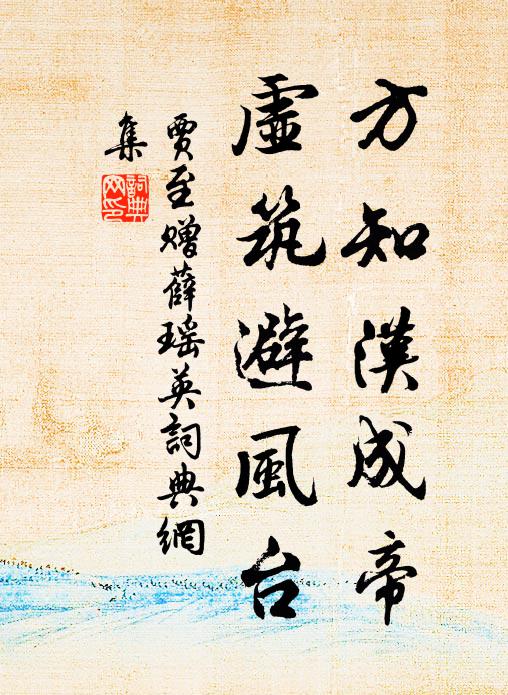 方知漢成帝
虛筑避風台
賈至贈薛瑤英詞典網
集
詞典
网印